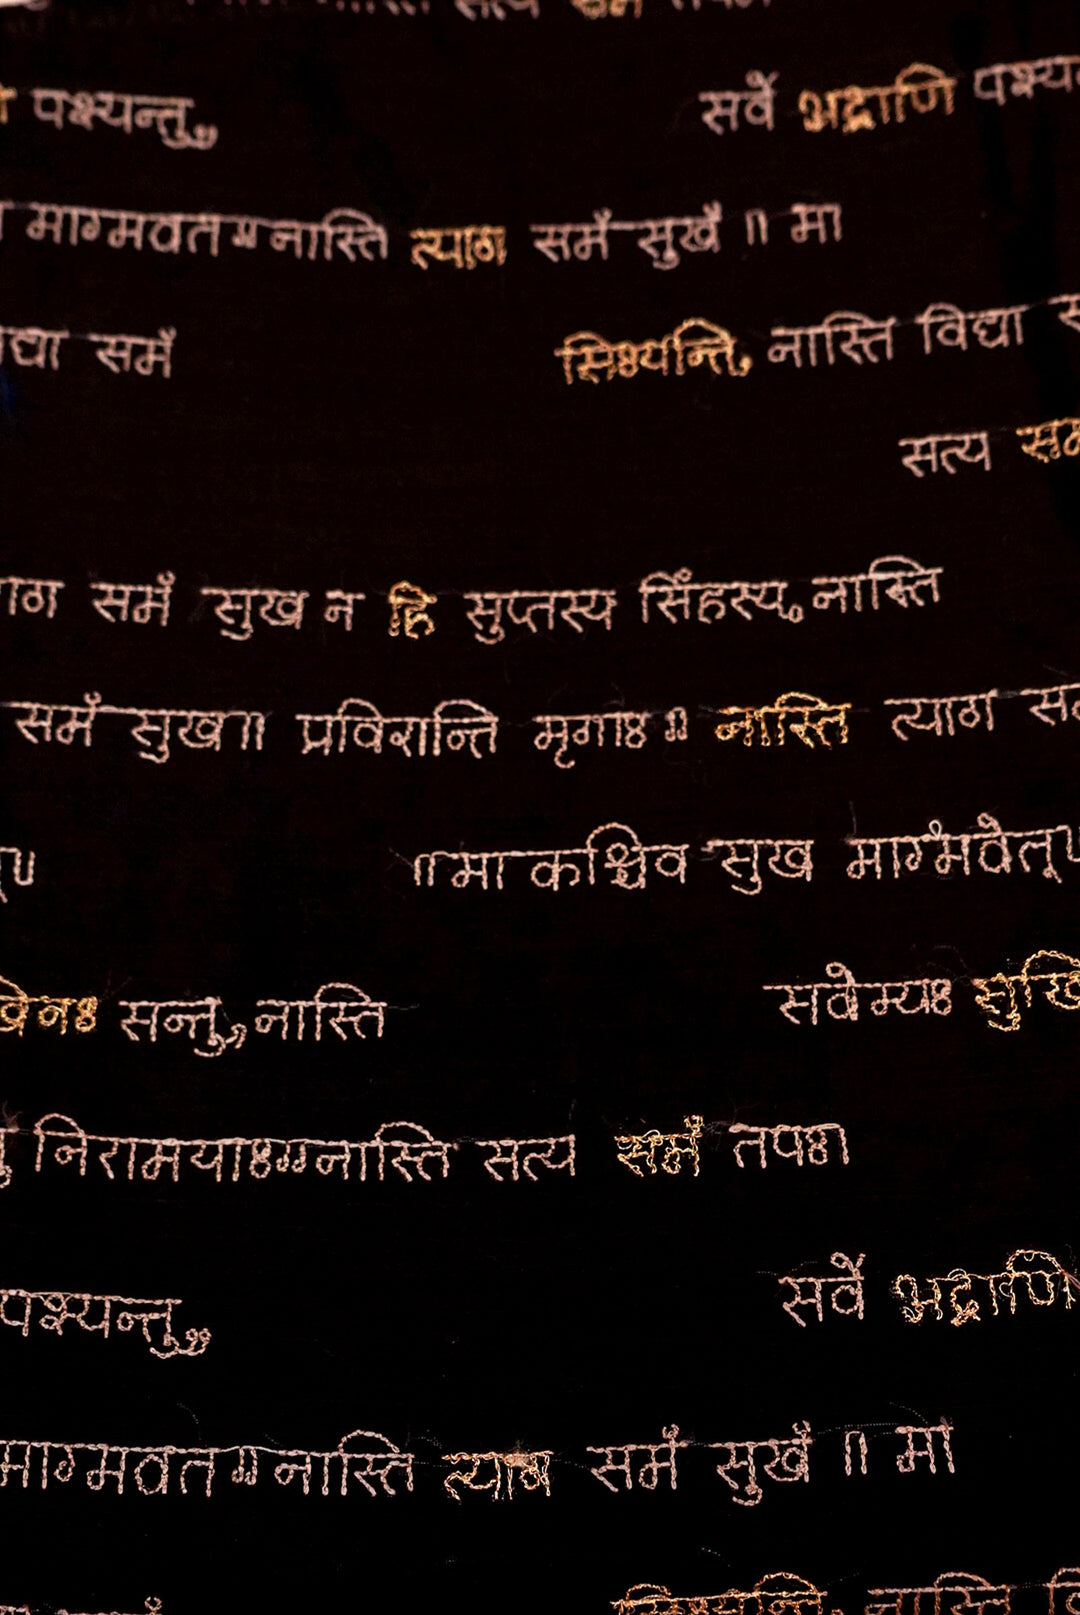 पश्यन्तु,, सर्वे भद्राणि
माग्मवत॥नास्ति त्याग समँ सुखँ ॥ मा
समँ सिध्यन्ति, नास्ति विद्या
सत्य
समँ सुख न हि सुप्तस्य सिंहस्य, नास्ति
समँ सुख॥ प्रविशन्ति मृगाः॥ नास्ति त्याग
॥मा कश्चिव सुख माग्मवेत्॥
सन्तु,, नास्ति सवेम्यः
निरामयाः॥नास्ति सत्य समँ तपः।
पश्यन्तु,, सर्वे भद्राणि
माग्मवत॥नास्ति त्याग समँ सुखँ ॥ मा